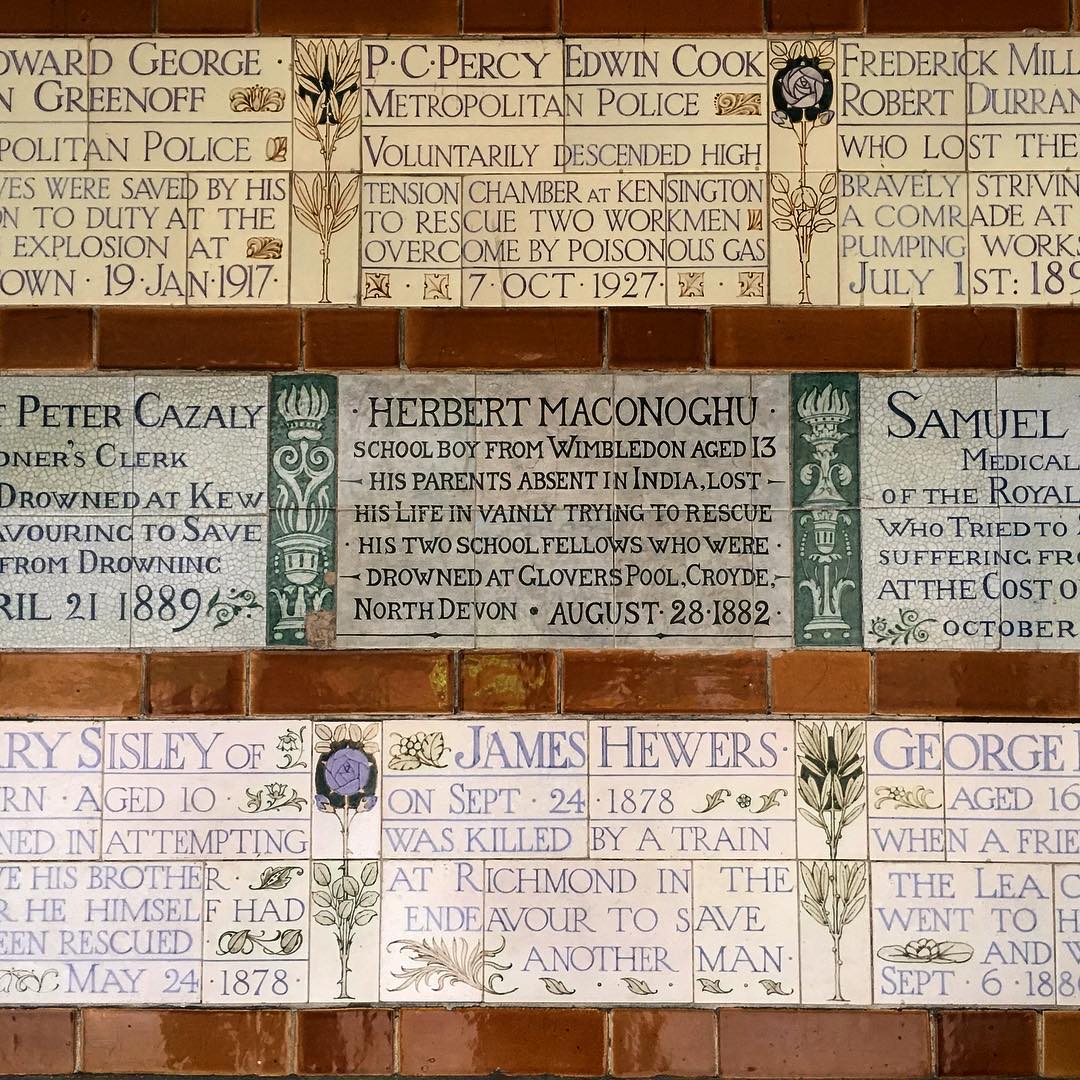 DWARD GEORGE ·
N GREENOFF
POLITAN POLICE
VES WERE SAVED BY HIS
ON TO DUTY AT THE
EXPLOSION AT
OWN · 19 · JAN · 1917 ·
P · C · PERCY EDWIN COOK
METROPOLITAN POLICE
VOLUNTARILY DESCENDED HIGH
TENSION CHAMBER AT KENSINGTON
TO RESCUE TWO WORKMEN
OVERCOME BY POISONOUS GAS
7 · OCT · 1927 ·
FREDERICK MILL
ROBERT DURRAN
WHO LOST THE
BRAVELY STRIVIN
A COMRADE AT
PUMPING WORKS
JULY 1ST: 189
T PETER CAZALY
ONER'S CLERK
DROWNED AT KEW
AVOURING TO SAVE
FROM DROWNING
RIL 21 1889
· HERBERT MACONOGHU ·
SCHOOL BOY FROM WIMBLEDON AGED 13
HIS PARENTS ABSENT IN INDIA, LOST
HIS LIFE IN VAINLY TRYING TO RESCUE
· HIS TWO SCHOOL FELLOWS WHO WERE ·
DROWNED AT GLOVERS POOL, CROYDE,
NORTH DEVON • AUGUST · 28 · 1882 ·
SAMUEL
MEDICAL
OF THE ROYAL
WHO TRIED TO
SUFFERING FRO
AT THE COST O
OCTOBER
RY SISLEY OF
RN · AGED 10 ·
NED IN ATTEMPTING
VE HIS BROTHER ·
R HE HIMSELF HAD
EEN RESCUED
MAY 24 · 1878 ·
JAMES HEWERS ·
ON SEPT · 24 · 1878
WAS KILLED BY A TRAIN
AT RICHMOND IN THE
ENDEAVOUR TO SAVE
ANOTHER MAN ·
GEORGE
AGED 16
WHEN A FRIE
THE LEA
WENT TO H
AND W
SEPT · 6 · 188